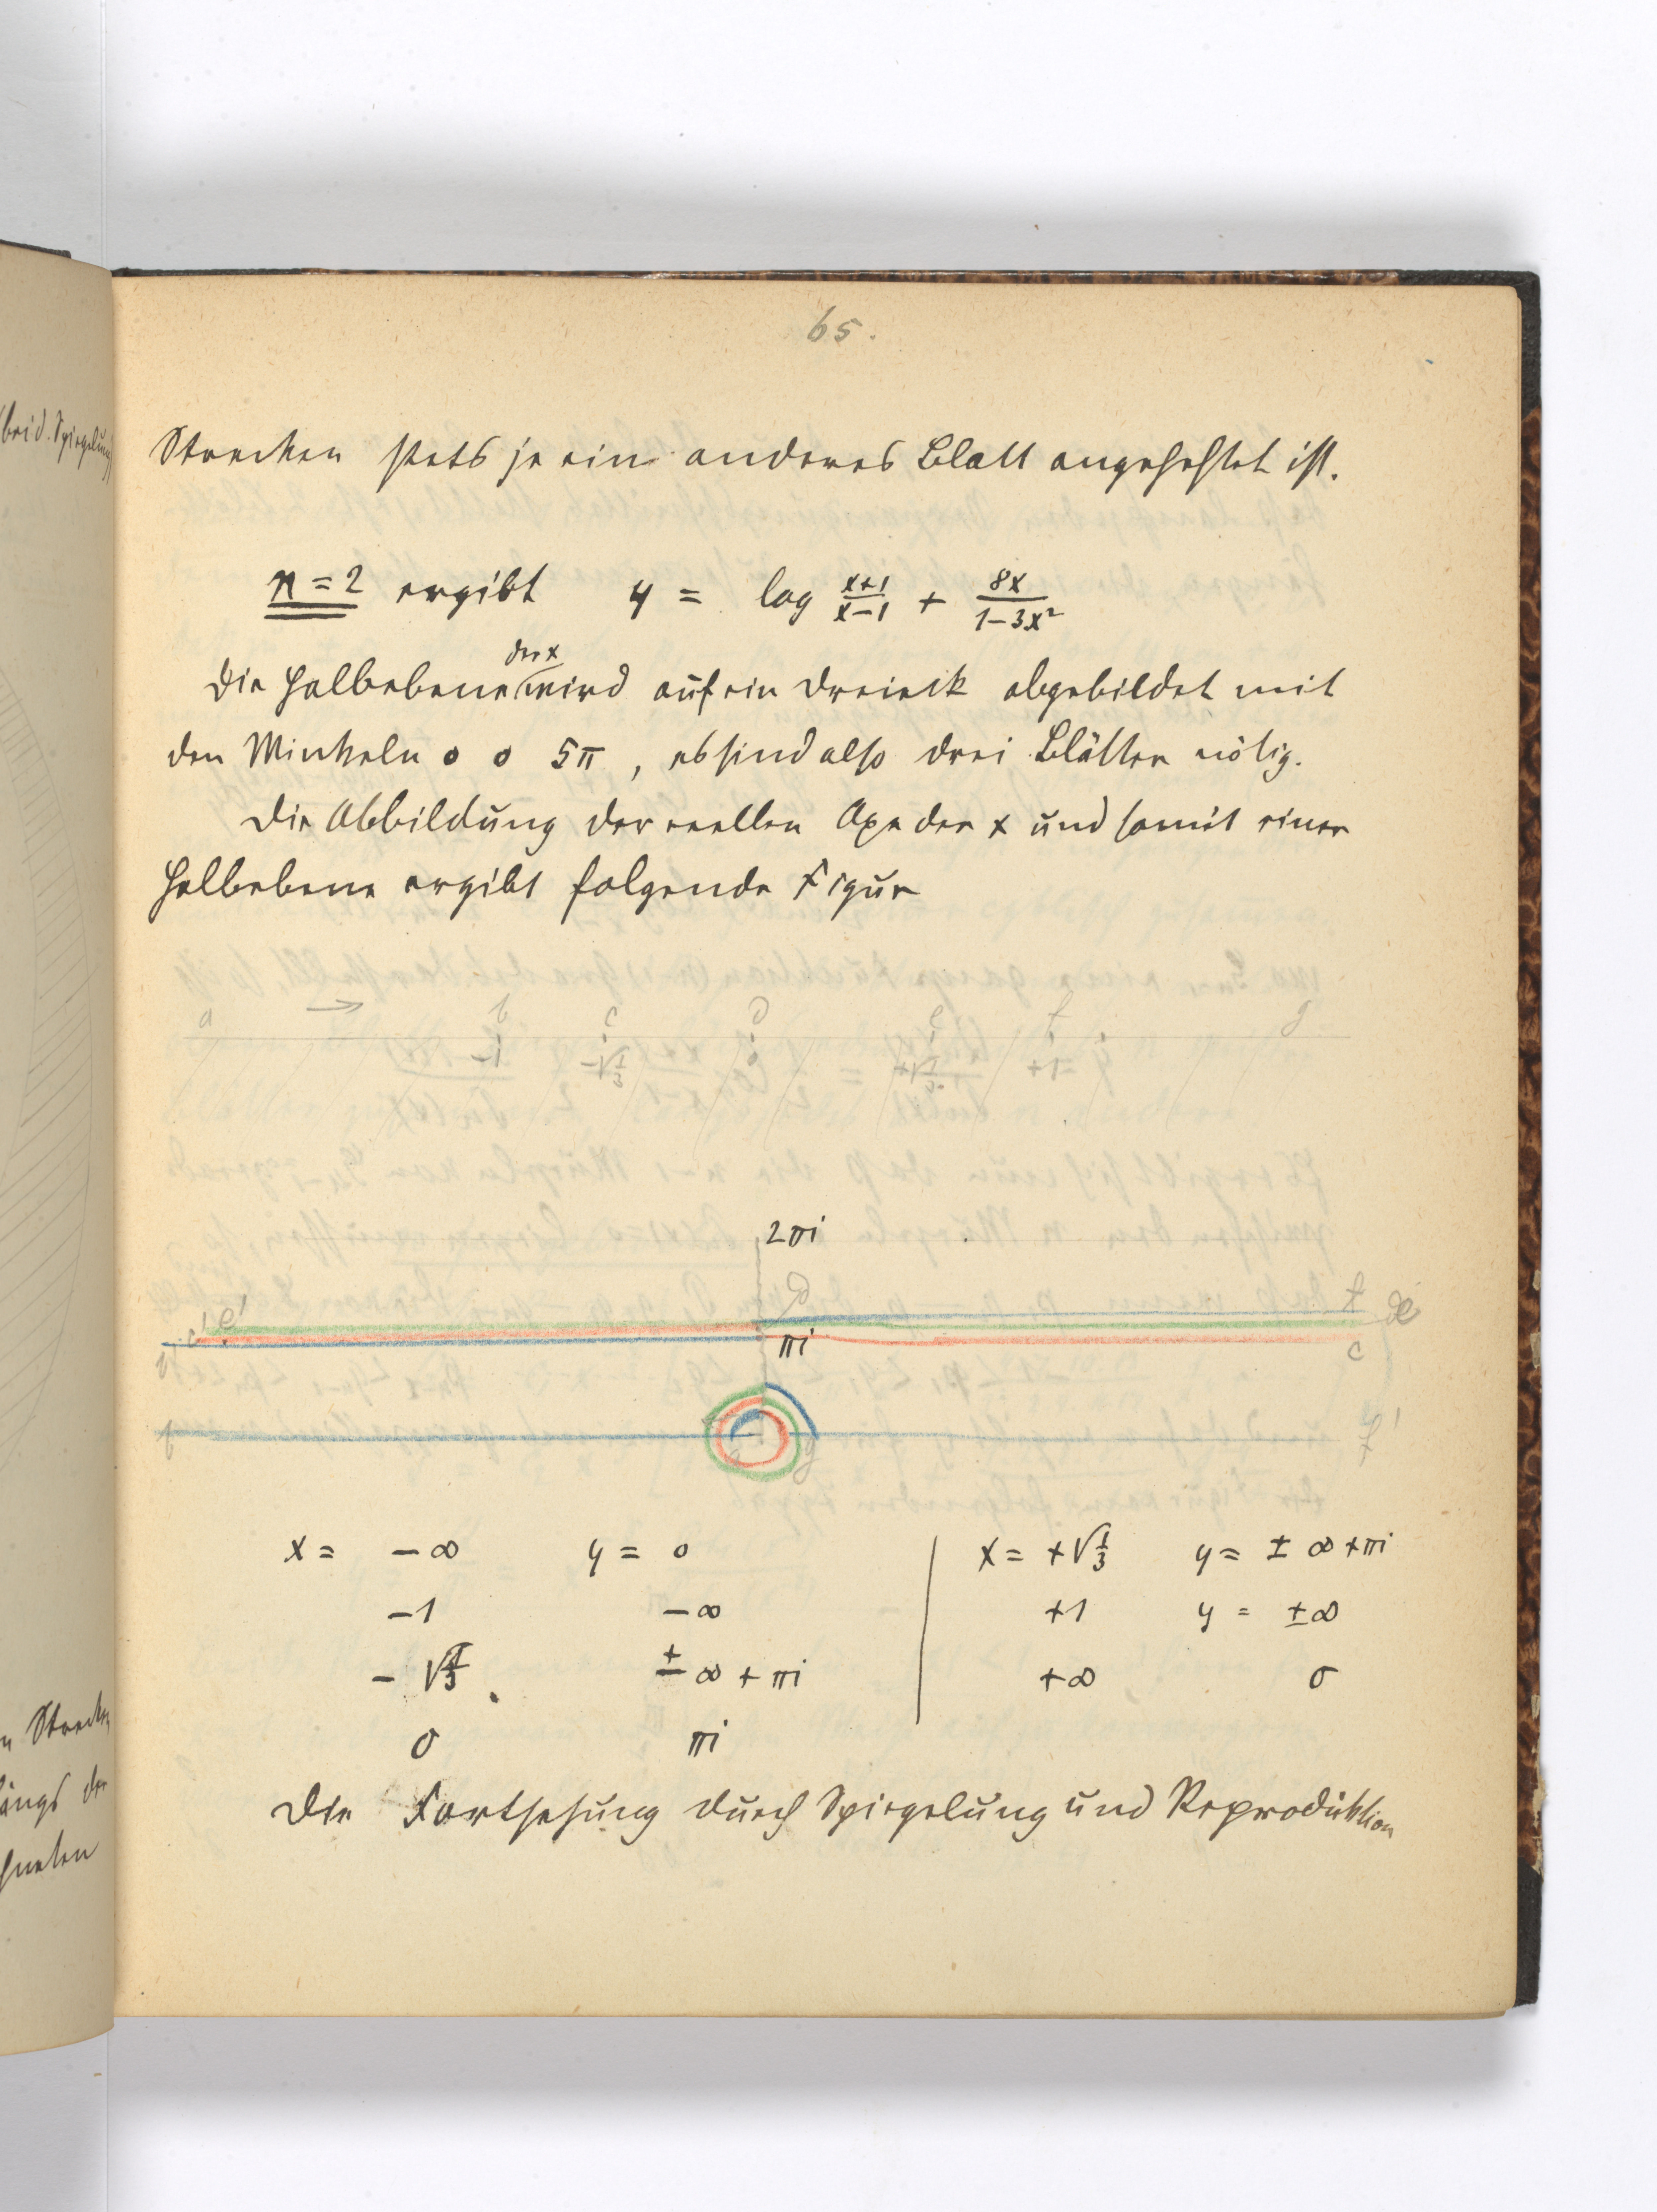 65.
Strecken stets je ein anderes Blatt angeheftet ist.
n = 2 ergibt y = log (x+1)/(x−1) + 8x/(1−3x²)
der x
Die Halbebene wird auf ein Dreieck abgebildet mit
den Winkeln 0 0 5π, es sind also drei Blätter nötig.
Die Abbildung der reellen Axe der x und somit einer
Halbebene ergibt folgende Figur
a → b c d e f g
−1 −√1/3 0 +√1/3 +1
2πi
d f
c' e' de
b πi c
b f'
a g
x = −∞ y = 0 | x = +√1/3 y = ± ∞ + πi
−1 −∞ | +1 y = ±∞
−√1/3 ± ∞ + πi | +∞ 0
0 πi
Die Fortsetzung durch Spiegelung und Reproduktion